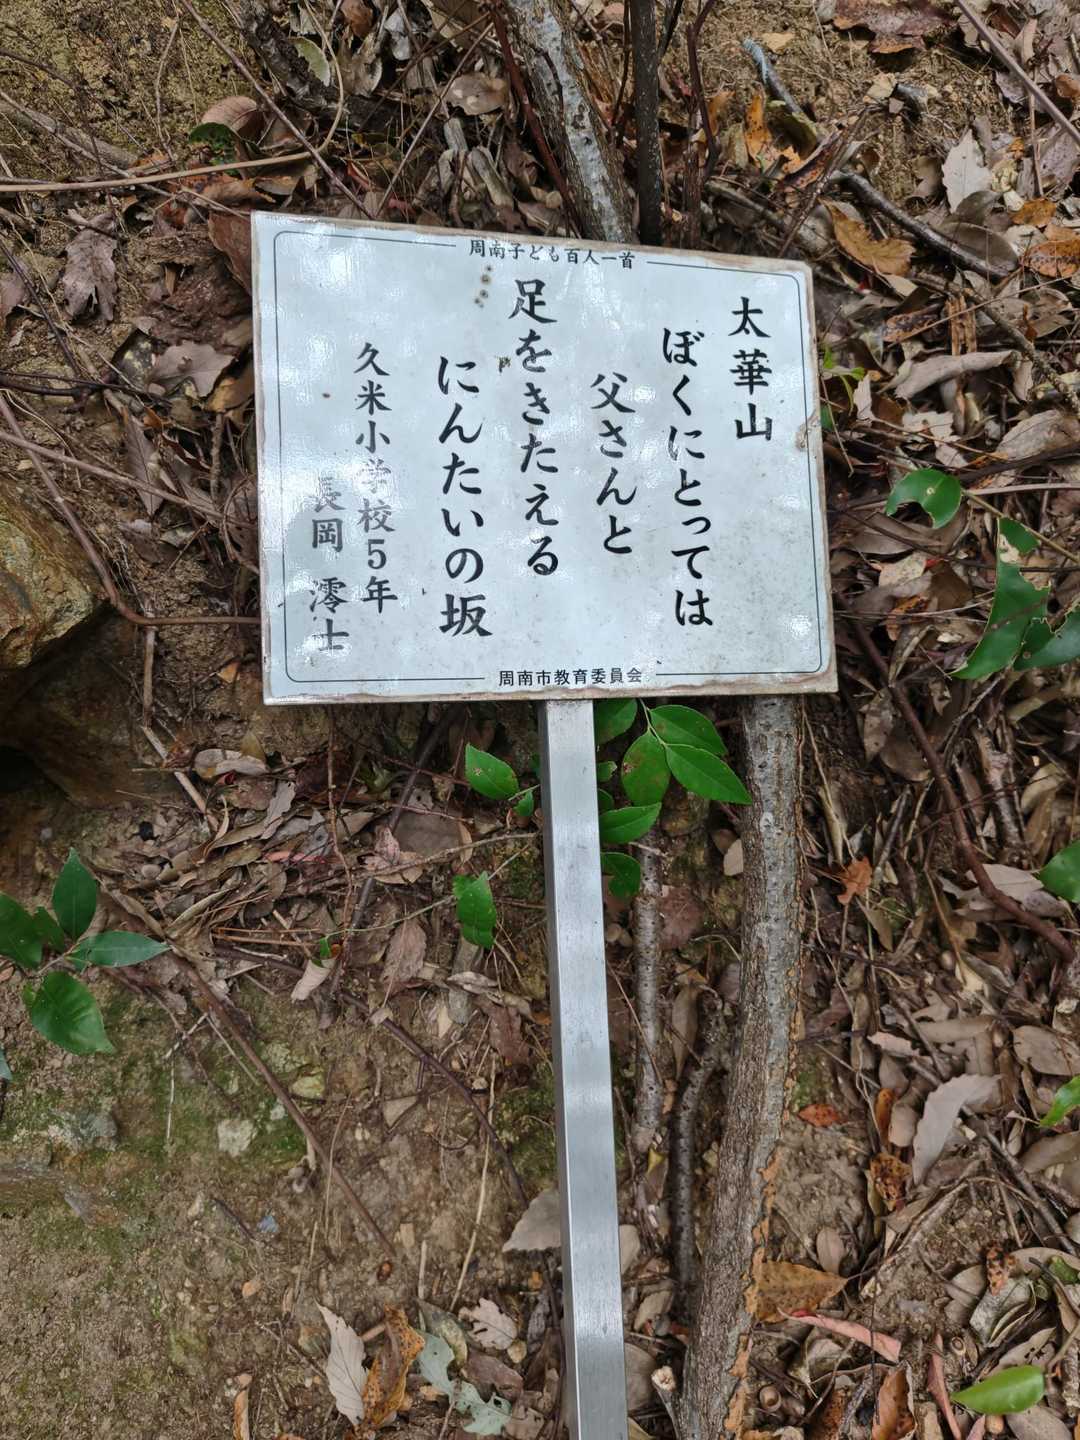 周南子ども百人一首
太華山
ぼくにとっては
父さんと
足をきたえる
にんたいの坂
久米小学校5年
長岡 澪士
周南市教育委員会